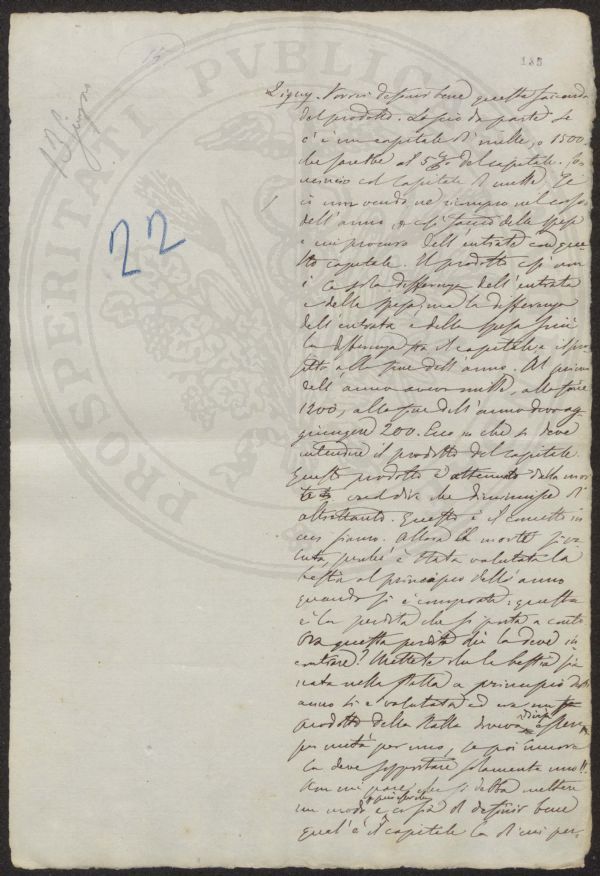 PROSPERITATI PUBLICAE
15
188
13 giugno
22
Ligny. Vorrei definir bene questa faccenda
del prodotto. Lascio da parte se
c'è un capitale di mille, o 1500
che sarebbe al 5% del capitale. Co
mincio col capitale di mille. Se
io non vendo, nè ricompro nel corso
dell'anno, e così faccio delle spese
e mi procuro dell'entrate con que
sto capitale. Il prodotto così non
è la sola differenza dell'entrata
e della spesa, ma la differenza
dell'entrata e della spesa più
la differenza fra il capitale, e il pro
getto alla fine dell'anno. Al primo
dell'anno avevo mille, alla fine
1200, alla fine dell'anno devo ag
giungere 200. Ecco in che si deve
intendere il prodotto del capitale.
Questo prodotto è attenuato dalla mor
te vuol dire che diminuisce di
altrettanto. Questo è il concetto in
cui siamo. Allora la morte
perchè è stata valutata la
bestia al principio dell'anno
quando si è comprata: questa
è la perdita che si porta a conto
Ora questa perdita chi la deve in
contrare? Mettete che la bestia sia
nata nella stalla a principio dell'
anno si è valutata ed era un
prodotto della stalla diviso
per metà per uno, se poi muore
la deve sopportare solamente uno!!
Non mi pare che si debba mettere
un modo così di definir bene
qual'è il capitale la di cui per-